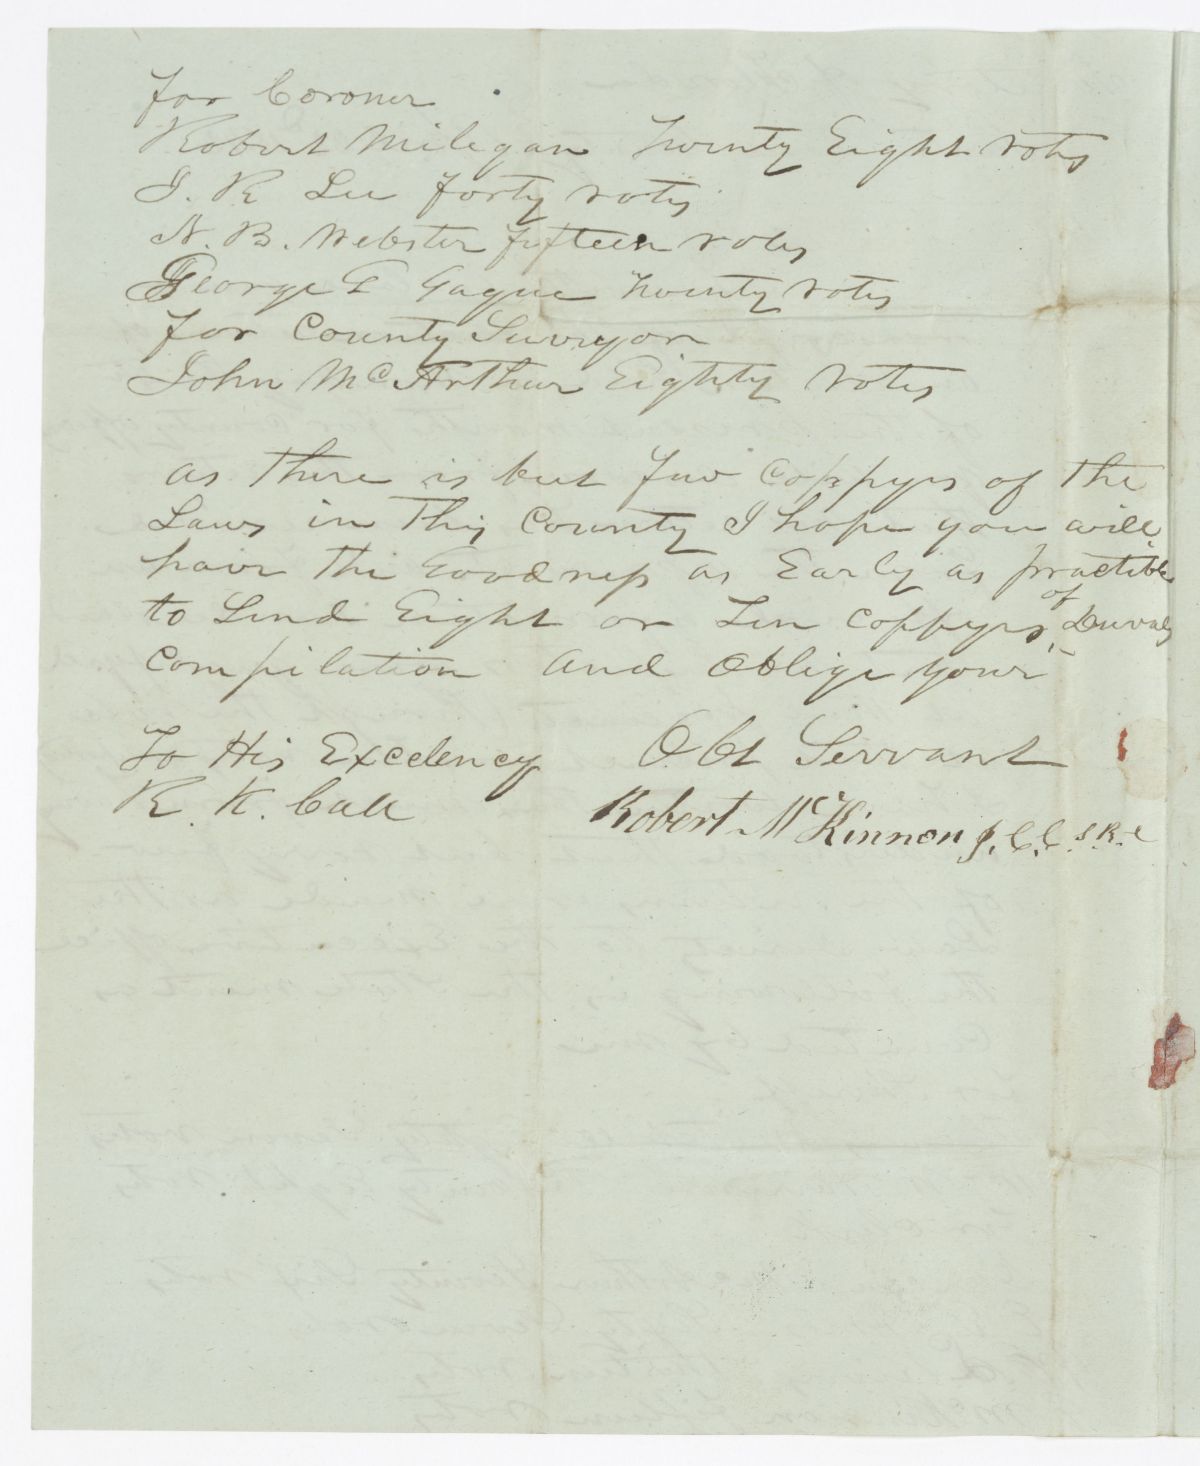 for Coroner
Robert Milegan Twenty Eight votes
J. R Lee forty votes
N. B. Webster fifteen votes
George G Gague Twenty votes
for County Surveyor
John McArthur Eighty votes
as there is but few Coppyes of the
Laws in This County I hope you will
have the Goodness as Early as practible
to Send Eight or Ten Coppyes of Duvals
Compilation and Oblige your
Obt Servant
To His Excelency
R. K. Call
Robert McKinnon J. C. C.